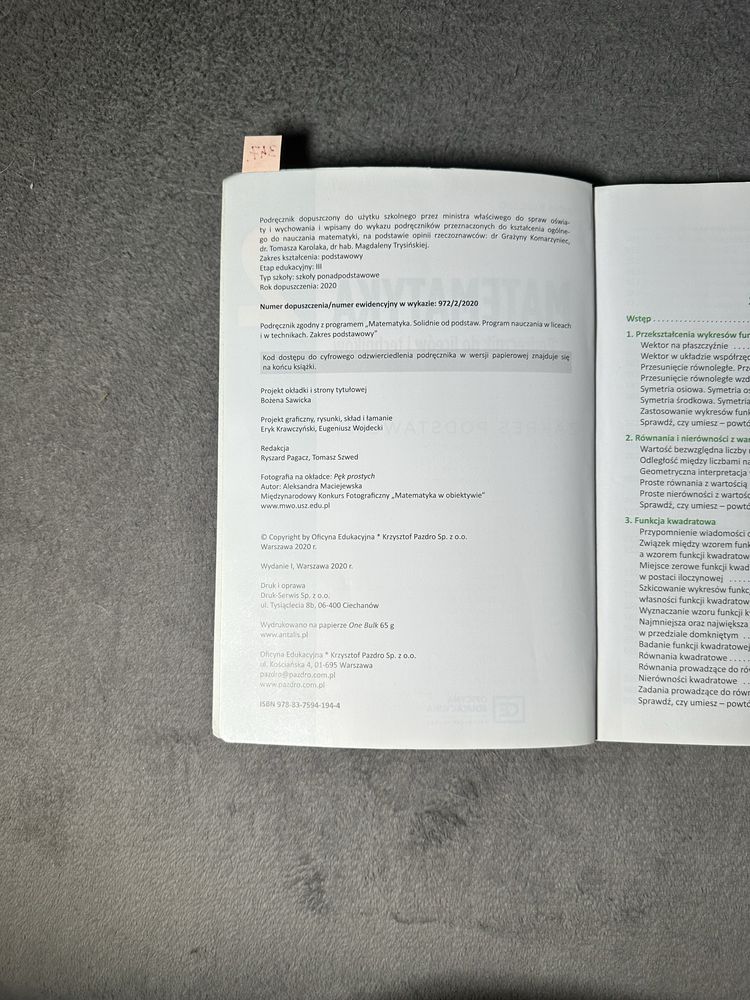 Podręcznik dopuszczony do użytku szkolnego przez ministra właściwego do spraw oświa-
ty i wychowania i wpisany do wykazu podręczników przeznaczonych do kształcenia ogólne-
go do nauczania matematyki, na podstawie opinii rzeczoznawców: dr Grażyny Komarzyniec,
dr. Tomasza Karolaka, dr hab. Magdaleny Trysińskiej.
Zakres kształcenia: podstawowy
Etap edukacyjny: III
Typ szkoły: szkoły ponadpodstawowe
Rok dopuszczenia: 2020
Numer dopuszczenia/numer ewidencyjny w wykazie: 972/2/2020
Podręcznik zgodny z programem „Matematyka. Solidnie od podstaw. Program nauczania w liceach
i w technikach. Zakres podstawowy”
Kod dostępu do cyfrowego odzwierciedlenia podręcznika w wersji papierowej znajduje się
na końcu książki.
Projekt okładki i strony tytułowej
Bożena Sawicka
Projekt graficzny, rysunki, skład i łamanie
Eryk Krawczyński, Eugeniusz Wojdecki
Redakcja
Ryszard Pagacz, Tomasz Szwed
Fotografia na okładce: Pęk prostych
Autor: Aleksandra Maciejewska
Międzynarodowy Konkurs Fotograficzny „Matematyka w obiektywie”
www.mwo.usz.edu.pl
© Copyright by Oficyna Edukacyjna * Krzysztof Pazdro Sp. z o.o.
Warszawa 2020 r.
Wydanie I, Warszawa 2020 r.
Druk i oprawa
Druk-Serwis Sp. z o.o.
ul. Tysiąclecia 8b, 06-400 Ciechanów
Wydrukowano na papierze One Bulk 65 g
www.antalis.pl
Oficyna Edukacyjna * Krzysztof Pazdro Sp. z o.o.
ul. Kościańska 4, 01-695 Warszawa
pazdro@pazdro.com.pl
www.pazdro.com.pl
ISBN 978-83-7594-194-4
Wstęp
1. Przekształcenia wykresów fun
Wektor na płaszczyźnie
Wektor w układzie współrzęd
Przesunięcie równoległe. Prze
Przesunięcie równoległe wzd
Symetria osiowa. Symetria os
Symetria środkowa. Symetria
Zastosowanie wykresów funk
Sprawdź, czy umiesz – powtó
2. Równania i nierówności z war
Wartość bezwzględna liczby
Odległość między liczbami na
Geometryczna interpretacja
Proste równania z wartością
Proste nierówności z wartoś
Sprawdź, czy umiesz – powtó
3. Funkcja kwadratowa
Przypomnienie wiadomości o
Związek między wzorem funk
a wzorem funkcji kwadratow
Miejsce zerowe funkcji kwad
w postaci iloczynowej
Szkicowanie wykresów funkc
własności funkcji kwadratow
Wyznaczanie wzoru funkcji k
Najmniejsza oraz największa
w przedziale domkniętym
Badanie funkcji kwadratowej
Równania kwadratowe
Równania prowadzące do rów
Nierówności kwadratowe
Zadania prowadzące do równ
Sprawdź, czy umiesz – powtó